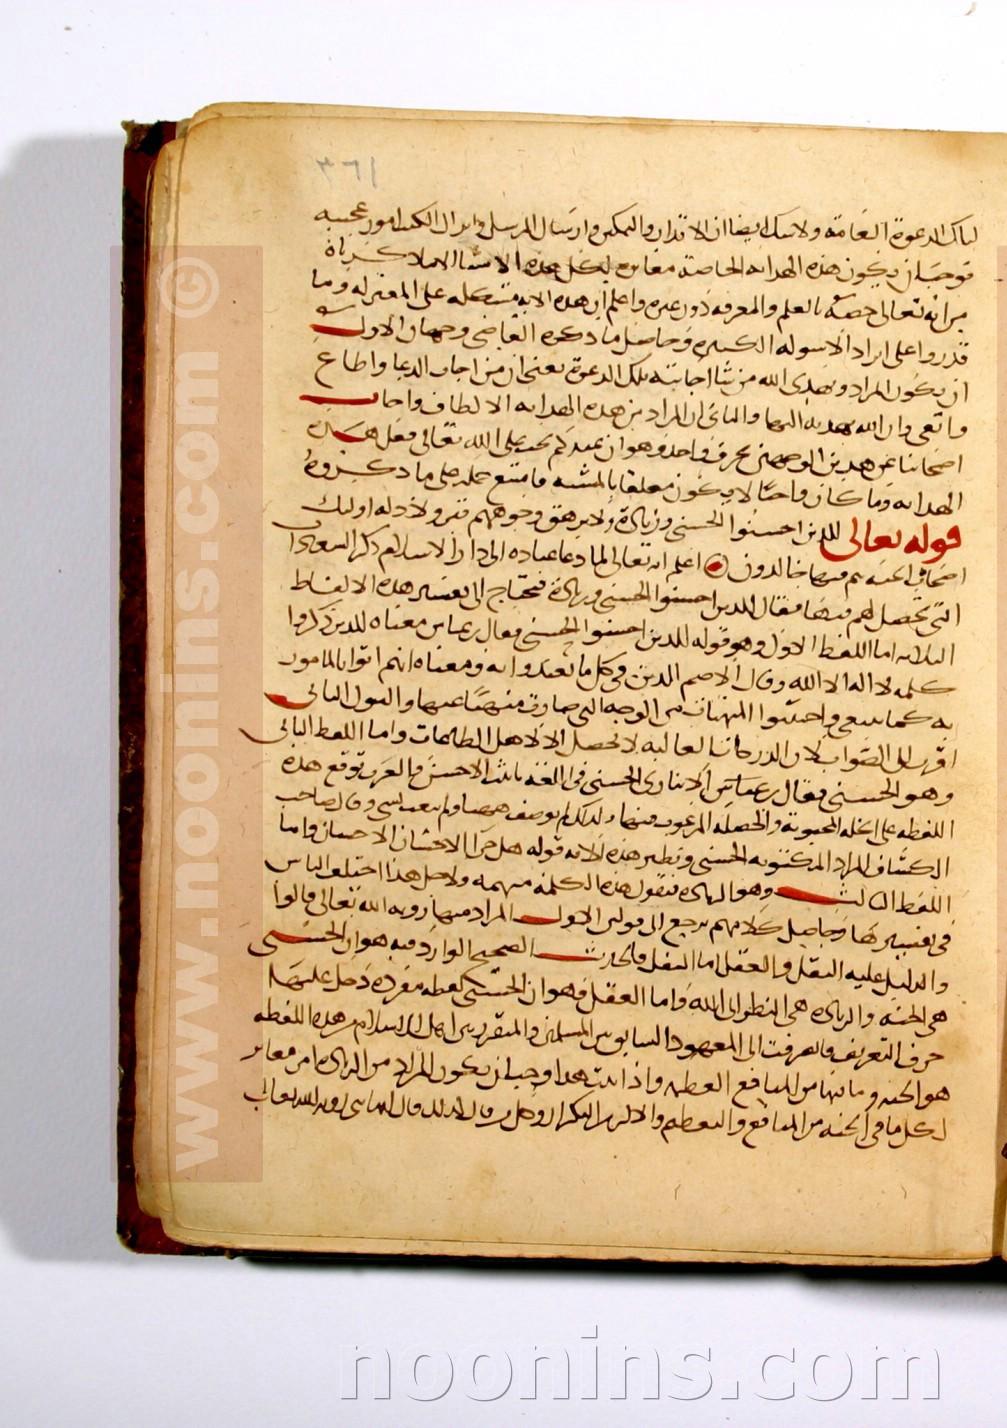 ٣٦١
لتلك الدعوة العامة ولا شك ايضا ان الاقدار والتمكين وارسال الرسل وانزال الكتب امور عجيبه
فوجب ان يكون هذه الهدايه الخاصة مغايره لكل هذه الاشيا الا ما ذكرناه
من انه تعالى خصه بالعلم والمعرفه دون غيره واعلم ان هذه الايه مشكله على المعتزله وما
قدروا على ايراد الاسوله الكثيره وحاصل ما ذكره القاضى وجهان الاول
ان يكون المراد ويهدى الله من يشا اجابته تلك الدعوة بمعنى ان من اجاب الدعا واطاع
واتقى وان الله يهديه اليها والثانى ان المراد من هذه الهدايه الالطاف واجاب
اصحابنا عن هذين الوجهين بحرف واحد وهو ان عندكم يجب على الله تعالى فعل هذه
الهدايه وما كان واجبا لا يكون معلقا بالمشيه فامتنع حمله على ما ذكروه
قوله تعالى للذين احسنوا الحسنى وزيادة ولا يرهق وجوههم قتر ولا ذله اوليك
اصحاب الجنه هم فيها خالدون اعلم انه تعالى لما دعا عباده الى دار الاسلام ذكر السعادات
التى تحصل لهم فيها فقال للذين احسنوا الحسنى وزيادة فنحتاج الى تفسير هذه الالفاظ
الثلاثه اما اللفظ الاول وهو قوله للذين احسنوا الحسنى فقال بن عباس معناه للذين ذكروا
كلمه لا اله الا الله وقال الاصم الذين فى كل ما تعبدوا به ومعناه انهم اتوا بالمامور
به كما ينبغى واجتنبوا المنهيات من الوجه التى صارت منهيا عنها والقول الثانى
اقرب الى الصواب لان الدرجات العاليه لا تحصل الا لاهل الطاعات واما اللفظ الثانى
وهو الحسنى فقال بن عباس الانبارى الحسنى فى اللغه تانيث الاحسن والعرب توقع هذه
اللفظه على الخله المحبوبة والخصله المرغوب فيها ولذلك لم توصف ولم تنعت بشى وقال صاحب
الكشاف المراد المثوبه الحسنى ونظير هذه الايه قوله هل جزا الاحسان الا حسان واما
اللفظ الثالث وهو الزياده فنقول هذه الكلمة مبهمه ولاجل هذا اختلف الناس
فى تفسيرها وحاصل كلامهم يرجع الى قولين الاول المراد منها رويه الله تعالى قالوا
والدليل عليه النقل والعقل اما النقل فالحديث الصحيح الوارد فيه هو ان الحسنى
هى الجنه والزياده هى النظر الى الله واما العقل فهو ان الحسنى لفظه مفرده دخل عليها
حرف التعريف فانصرفت الى المعهود السابق بين المسلمين والمتقرر بين اهل الاسلام من هذه اللفظه
هو الجنه وما فيها من المنافع العظيمه واذا ثبت هذا وجب ان يكون المراد من الزيادة امر مغاير
لكل ما فى الجنه من المنافع والتعظيم والا لزم التكرار وكل من قال بذلك قال انما هى رويه الله تعالى
www.noonins.com ©
noonins.com